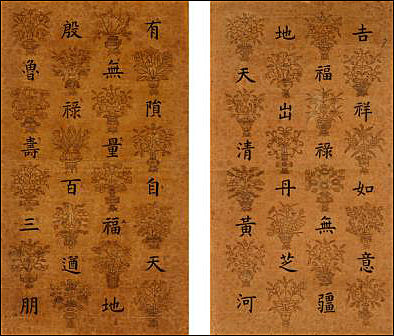 吉祥如意
福祿無疆
地出丹芝
天清黃河
有隕自天
無量福地
殷祿百遒
魯壽三朋